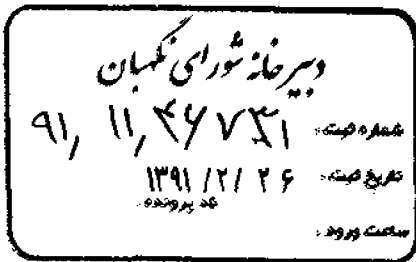 دبیرخانه شورای نگهبان
شماره ثبت: ۹۱/۱۱/۴۶۷۳۱
تاریخ ثبت: ۱۳۹۱/۲/۲۶
کد پرونده:
ساعت ورود: